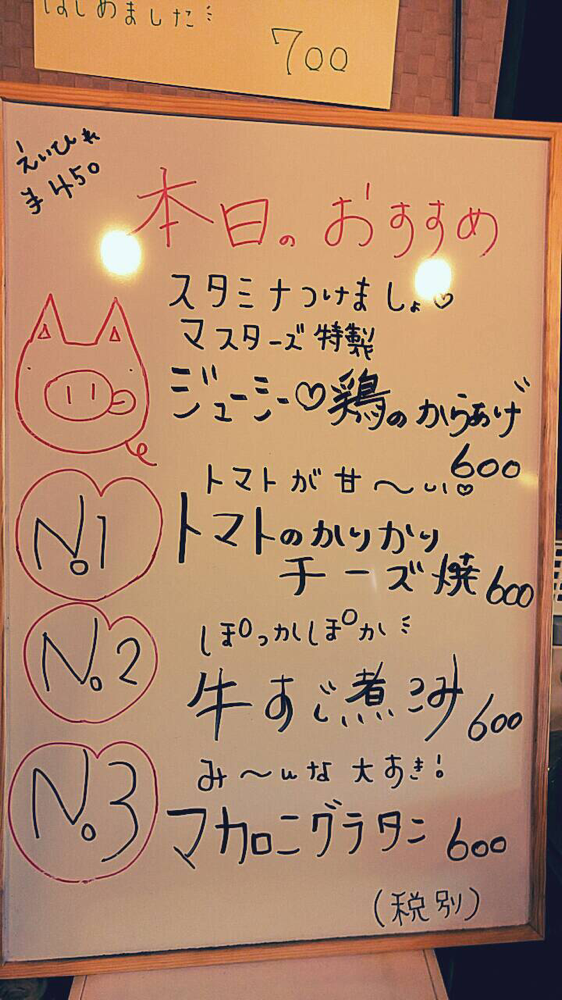 はじめました
700
えいひれ
¥450
本日のおすすめ
スタミナつけましょ♡
マスターズ特製
ジューシー♡鶏のからあげ
600
トマトが甘〜い♡
No.1
トマトのかりかり
チーズ焼 600
ぽっかぽか
No.2
牛すじ煮こみ 600
み〜んな大すき!
No.3
マカロニグラタン 600
(税別)